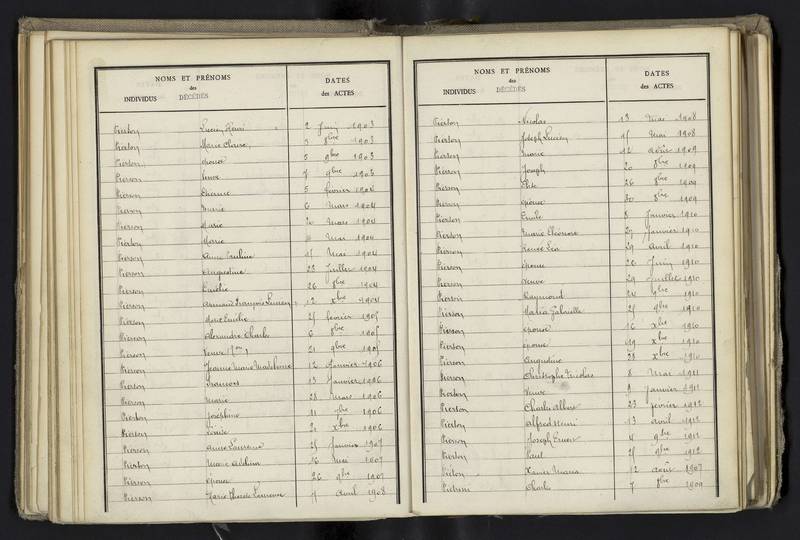 NOMS ET PRÉNOMS
des
INDIVIDUS DÉCÉDÉS
DATES
des ACTES
Pierson Lucien Henri 2 Juin 1903
Pierson Marie Claire 3 8bre 1903
Pierson épouse 5 9bre 1903
Pierson Veuve 7 9bre 1903
Pierson Etienne 5 février 1904
Pierson Marie 6 Mars 1904
Pierson Marie 20 Mars 1904
Pierson Marie Mai 1904
Pierson Anne Pauline Mai 1904
Pierson Augustine 23 Juillet 1904
Pierson Emélie 26 8bre 1904
Pierson Armand François Lucien 12 xbre 1904
Pierson Marie Emélie 25 février 1905
Pierson Alexandre Charles 6 8bre 1905
Pierson Veuve 21 9bre 1905
Pierson Jeanne Marie Madeleine 12 Janvier 1906
Pierson François 13 Janvier 1906
Pierson Marie 28 Mars 1906
Pierson Joséphine 11 1906
Pierson Louise 21 xbre 1906
Pierson Anne Laurence 25 Janvier 1907
Pierson Marie 16 Mai 1907
Pierson épouse 26 9bre 1907
Pierson Marie Avril 1908
NOMS ET PRÉNOMS
des
INDIVIDUS DÉCÉDÉS
DATES
des ACTES
Pierson Nicolas 13 Mai 1908
Pierson Joseph Lucien 15 Mai 1908
Pierson Marie 12 Août 1909
Pierson Joseph 20 8bre 1909
Pierson 26 8bre 1909
Pierson épouse 30 8bre 1909
Pierson Emile 8 Janvier 1910
Pierson Marie Eléonore 27 Janvier 1910
Pierson René Léon 29 Avril 1910
Pierson épouse 26 Juin 1910
Pierson Veuve 29 Juillet 1910
Pierson Raymond 24 9bre 1910
Pierson Maria Gabrielle 25 9bre 1910
Pierson épouse 16 xbre 1910
Pierson épouse 19 xbre 1910
Pierson Augustine 28 xbre 1910
Pierson Christophe Nicolas 8 Mai 1911
Pierson Veuve 9 Janvier 1912
Pierson Charles Albert 23 février 1912
Pierson Alfred Henri 13 Avril 1912
Pierson Joseph Ernest 4 9bre 1912
Pierson Paul 25 9bre 1912
Xavier Marie 12 Août 1907
Charles 7 8bre 1909